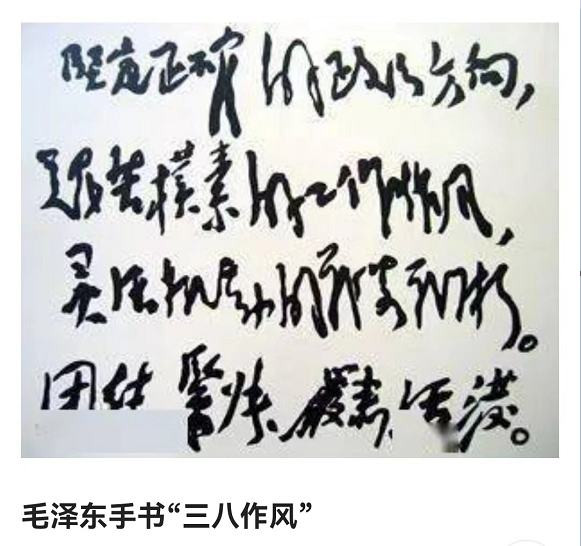 坚定正确的政治方向，
艰苦樸素的工作作风，
灵活机动的战略战术。
团结 緊张 嚴肃 活泼。
毛泽东手书“三八作风”